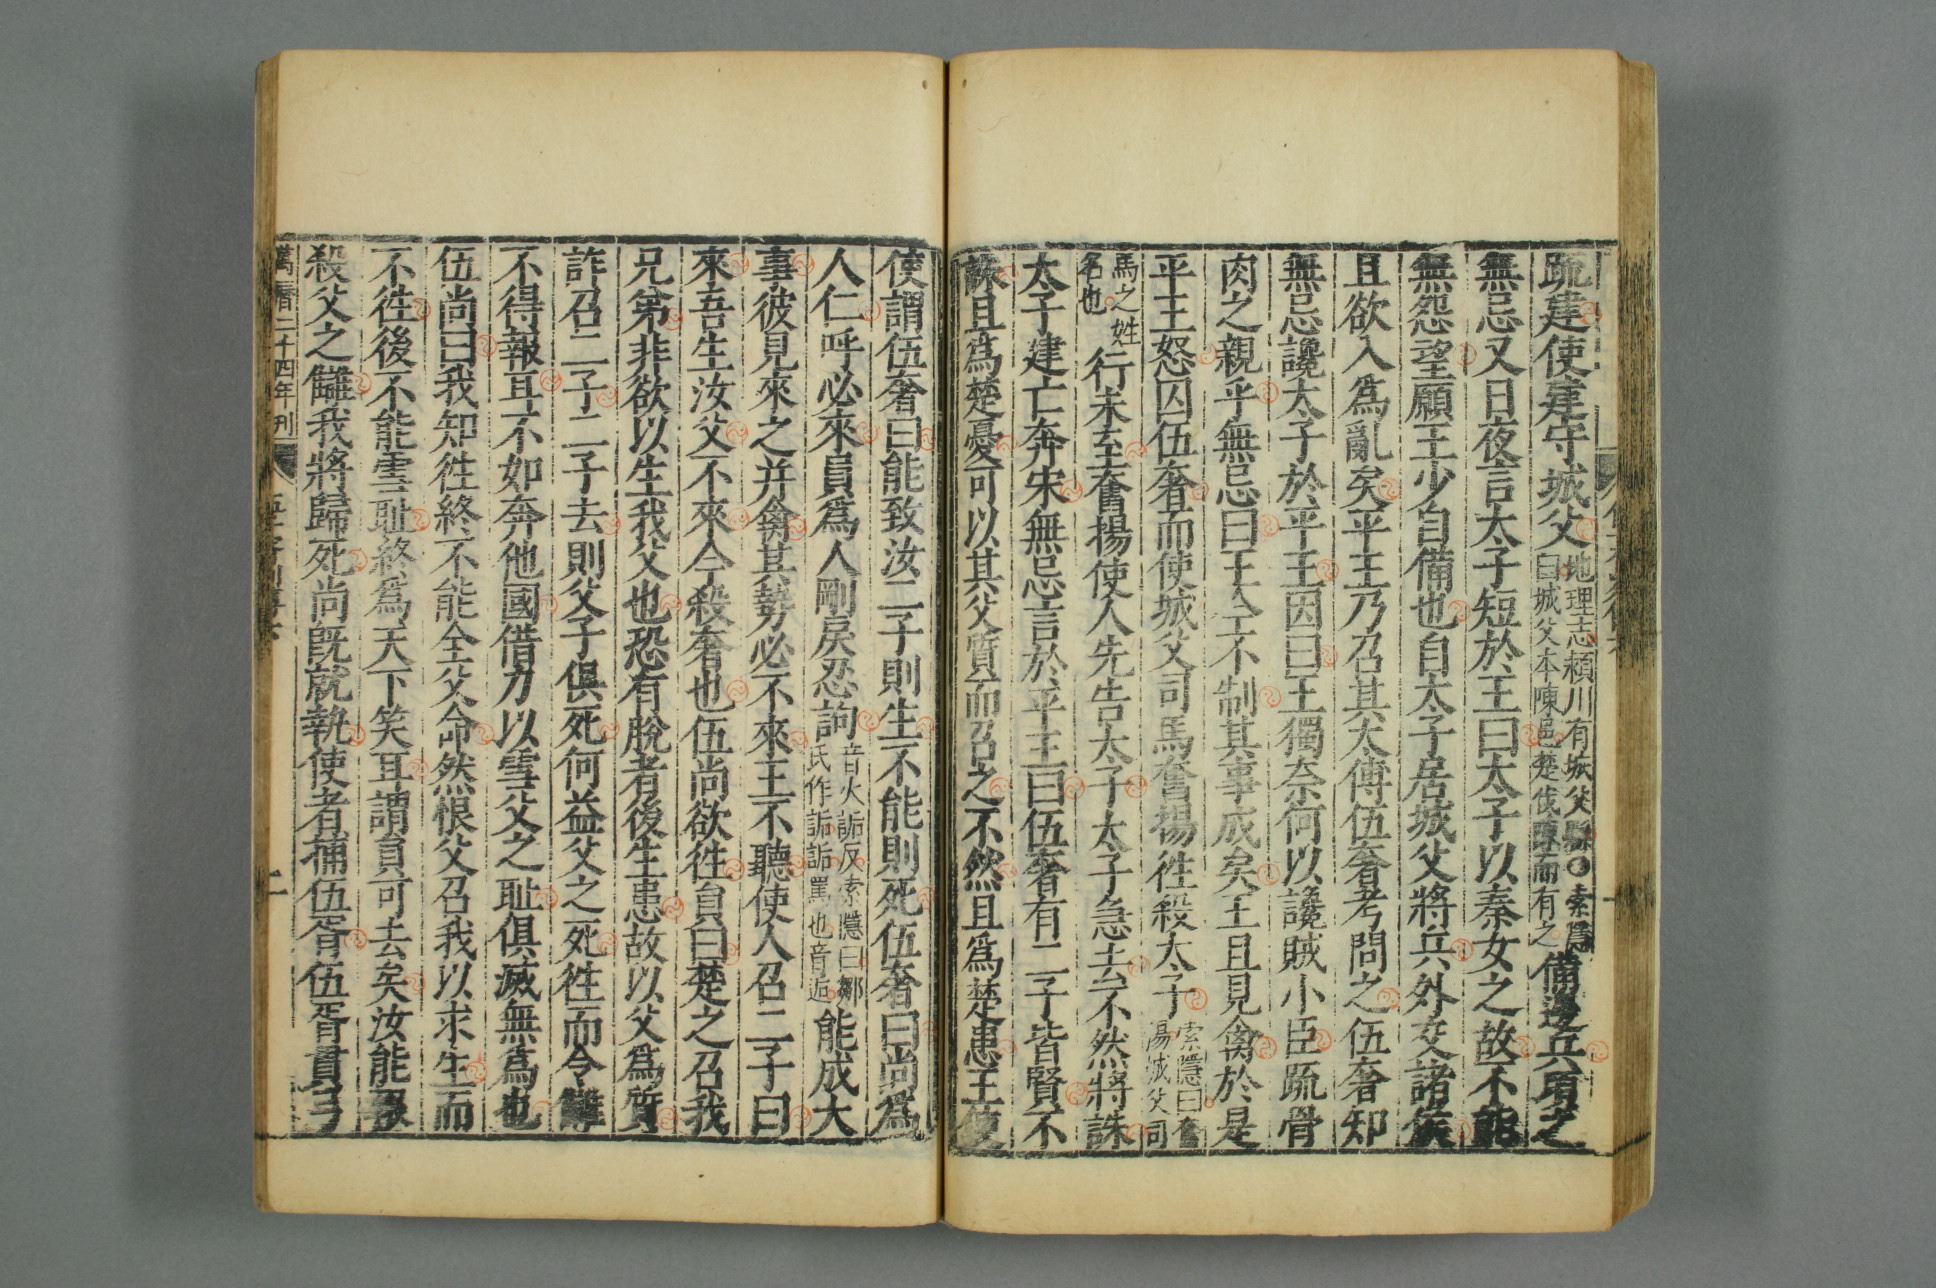 疏建使建守城父地理志潁川有城父縣○索隱曰城父本陳邑楚伐陳而有之備邊兵頃之
無忌又日夜言太子短於王曰太子以秦女之故不能
無怨望願王少自備也自太子居城父將兵外交諸侯
且欲入爲亂矣平王乃召其太傅伍奢考問之伍奢知
無忌讒太子於平王因曰王獨柰何以讒賊小臣疏骨
肉之親乎無忌曰王今不制其事成矣王且見禽於是
平王怒囚伍奢而使城父司馬奮揚徃殺太子索隱曰奮揚城父司
馬之姓名也行未至奮揚使人先告太子太子急去不然將誅
太子建亡奔宋無忌言於平王曰伍奢有二子皆賢不
誅且爲楚憂可以其父質而召之不然且爲楚患王使
使謂伍奢曰能致汝二子則生不能則死伍奢曰尚爲
人仁呼必來員爲人剛戾忍訽音火詬反索隱曰鄒氏作詬詬罵也音逅能成大
事彼見來之并禽其勢必不來王不聽使人召二子曰
來吾生汝父不來今殺奢也伍尚欲徃員曰楚之召我
兄弟非欲以生我父也恐有脫者後生患故以父爲質
詐召二子二子去則父子俱死何益父之死徃而令讎
不得報耳不如奔他國借力以雪父之耻俱滅無爲也
伍尚曰我知徃終不能全父命然恨父召我以求生而
不徃後不能雪耻終爲天下笑耳謂員可去矣汝能報
殺父之讎我將歸死尚旣就執使者捕伍胥伍胥貫弓
萬曆二十四年刊
二